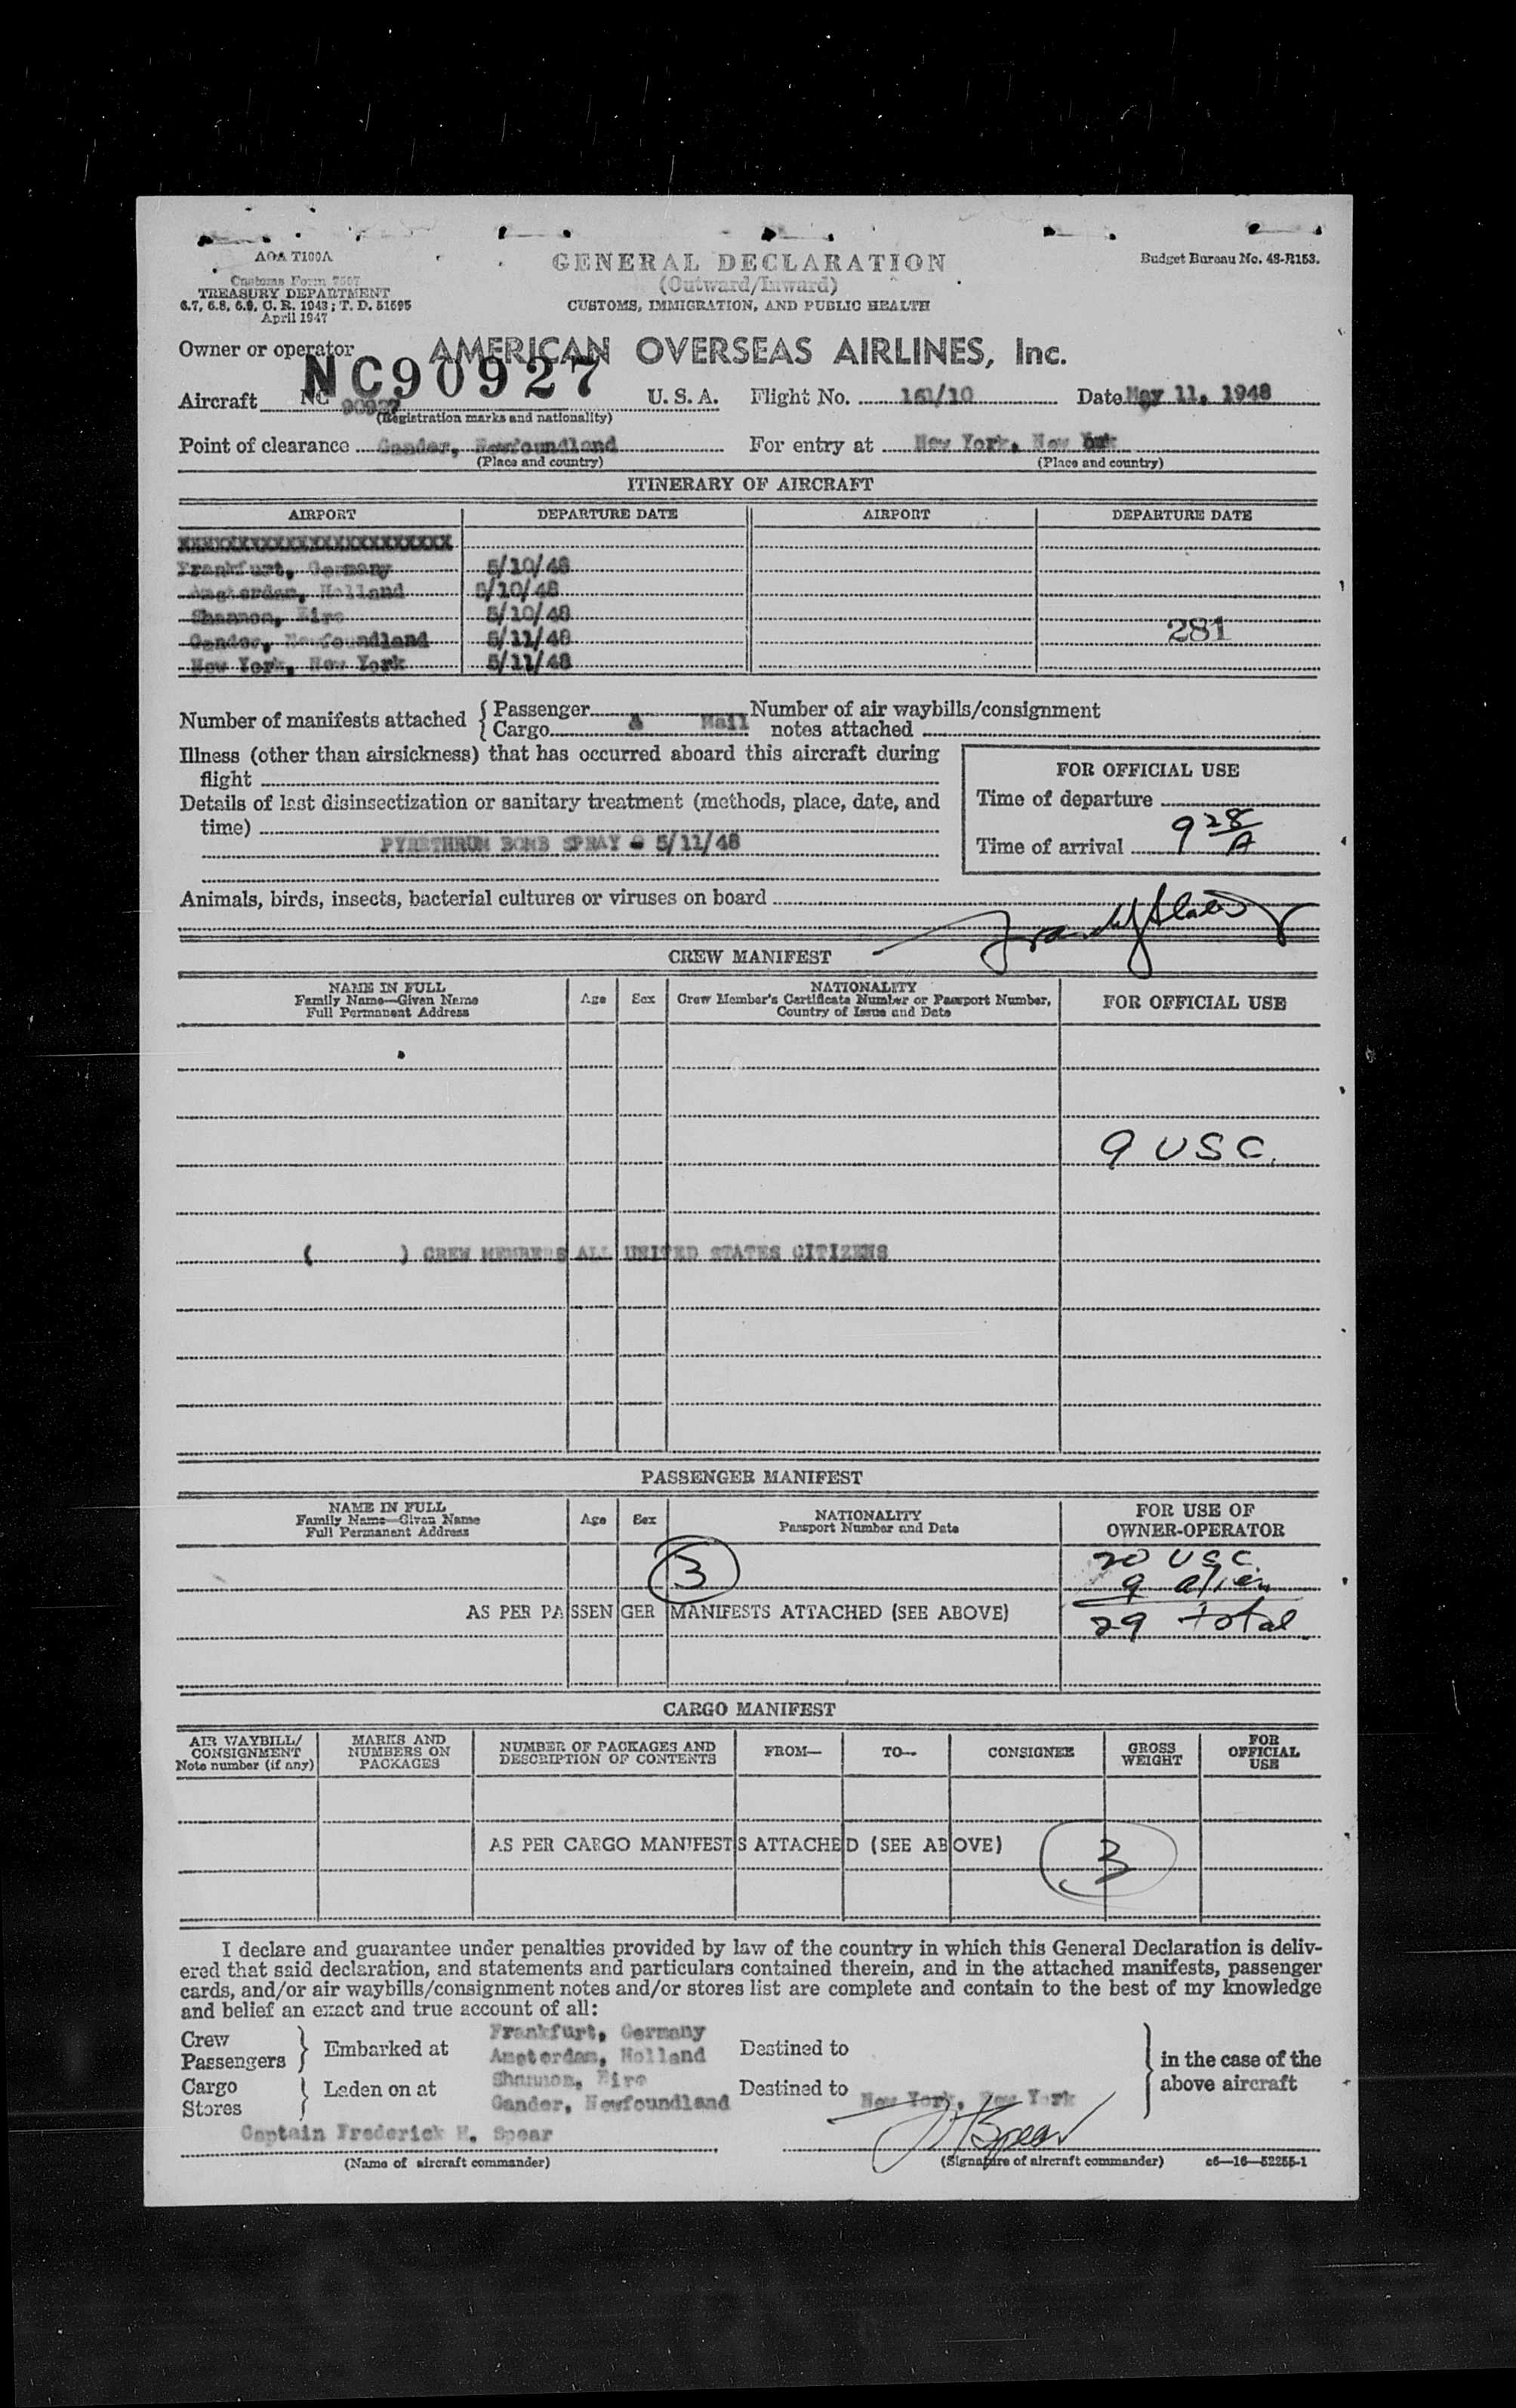 AOA T100A
Customs Form 7507
TREASURY DEPARTMENT
6.7, 6.8, 6.9, C. R. 1943; T. D. 51695
April 1947
GENERAL DECLARATION
(Outward/Inward)
CUSTOMS, IMMIGRATION, AND PUBLIC HEALTH
Budget Bureau No. 48-R153.
Owner or operator AMERICAN OVERSEAS AIRLINES, Inc.
NC90927
Aircraft NC 90927 U. S. A. Flight No. 161/10 Date May 11, 1948
(Registration marks and nationality)
Point of clearance Gander, Newfoundland For entry at New York, New York
(Place and country) (Place and country)
ITINERARY OF AIRCRAFT
AIRPORT DEPARTURE DATE AIRPORT DEPARTURE DATE
Frankfurt, Germany 5/10/48
Amsterdam, Holland 5/10/48
Shannon, Eire 5/10/48
Gander, Newfoundland 5/11/48 281
New York, New York 5/11/48
Number of manifests attached { Passenger Number of air waybills/consignment
{ Cargo & Mail notes attached
Illness (other than airsickness) that has occurred aboard this aircraft during
flight
Details of last disinsectization or sanitary treatment (methods, place, date, and
time)
PYRETHRUM BOMB SPRAY - 5/11/48
FOR OFFICIAL USE
Time of departure
Time of arrival 9 28 A
Animals, birds, insects, bacterial cultures or viruses on board
CREW MANIFEST
NAME IN FULL
Family Name—Given Name
Full Permanent Address
Age Sex
NATIONALITY
Crew Member's Certificate Number or Passport Number,
Country of Issue and Date
FOR OFFICIAL USE
9 USC.
( ) CREW MEMBERS ALL UNITED STATES CITIZENS
PASSENGER MANIFEST
NAME IN FULL
Family Name—Given Name
Full Permanent Address
Age Sex
NATIONALITY
Passport Number and Date
FOR USE OF
OWNER-OPERATOR
3
20 USC
9 alien
AS PER PASSENGER MANIFESTS ATTACHED (SEE ABOVE)
29 total
CARGO MANIFEST
AIR WAYBILL/
CONSIGNMENT
Note number (if any)
MARKS AND
NUMBERS ON
PACKAGES
NUMBER OF PACKAGES AND
DESCRIPTION OF CONTENTS
FROM—
TO—
CONSIGNEE
GROSS
WEIGHT
FOR
OFFICIAL
USE
AS PER CARGO MANIFESTS ATTACHED (SEE ABOVE)
3
I declare and guarantee under penalties provided by law of the country in which this General Declaration is deliv-
ered that said declaration, and statements and particulars contained therein, and in the attached manifests, passenger
cards, and/or air waybills/consignment notes and/or stores list are complete and contain to the best of my knowledge
and belief an exact and true account of all:
Crew
Passengers } Embarked at
Frankfurt, Germany
Amsterdam, Holland
Destined to
Cargo
Stores } Laden on at
Shannon, Eire
Gander, Newfoundland
Destined to New York, New York
} in the case of the
above aircraft
Captain Frederick H. Spear
(Name of aircraft commander)
(Signature of aircraft commander) c6—16—52255-1